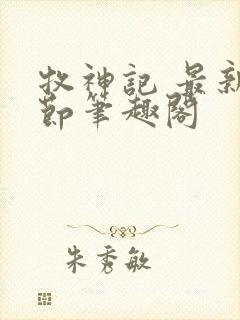 牧神記 最新
節筆趣閣
朱秀敏